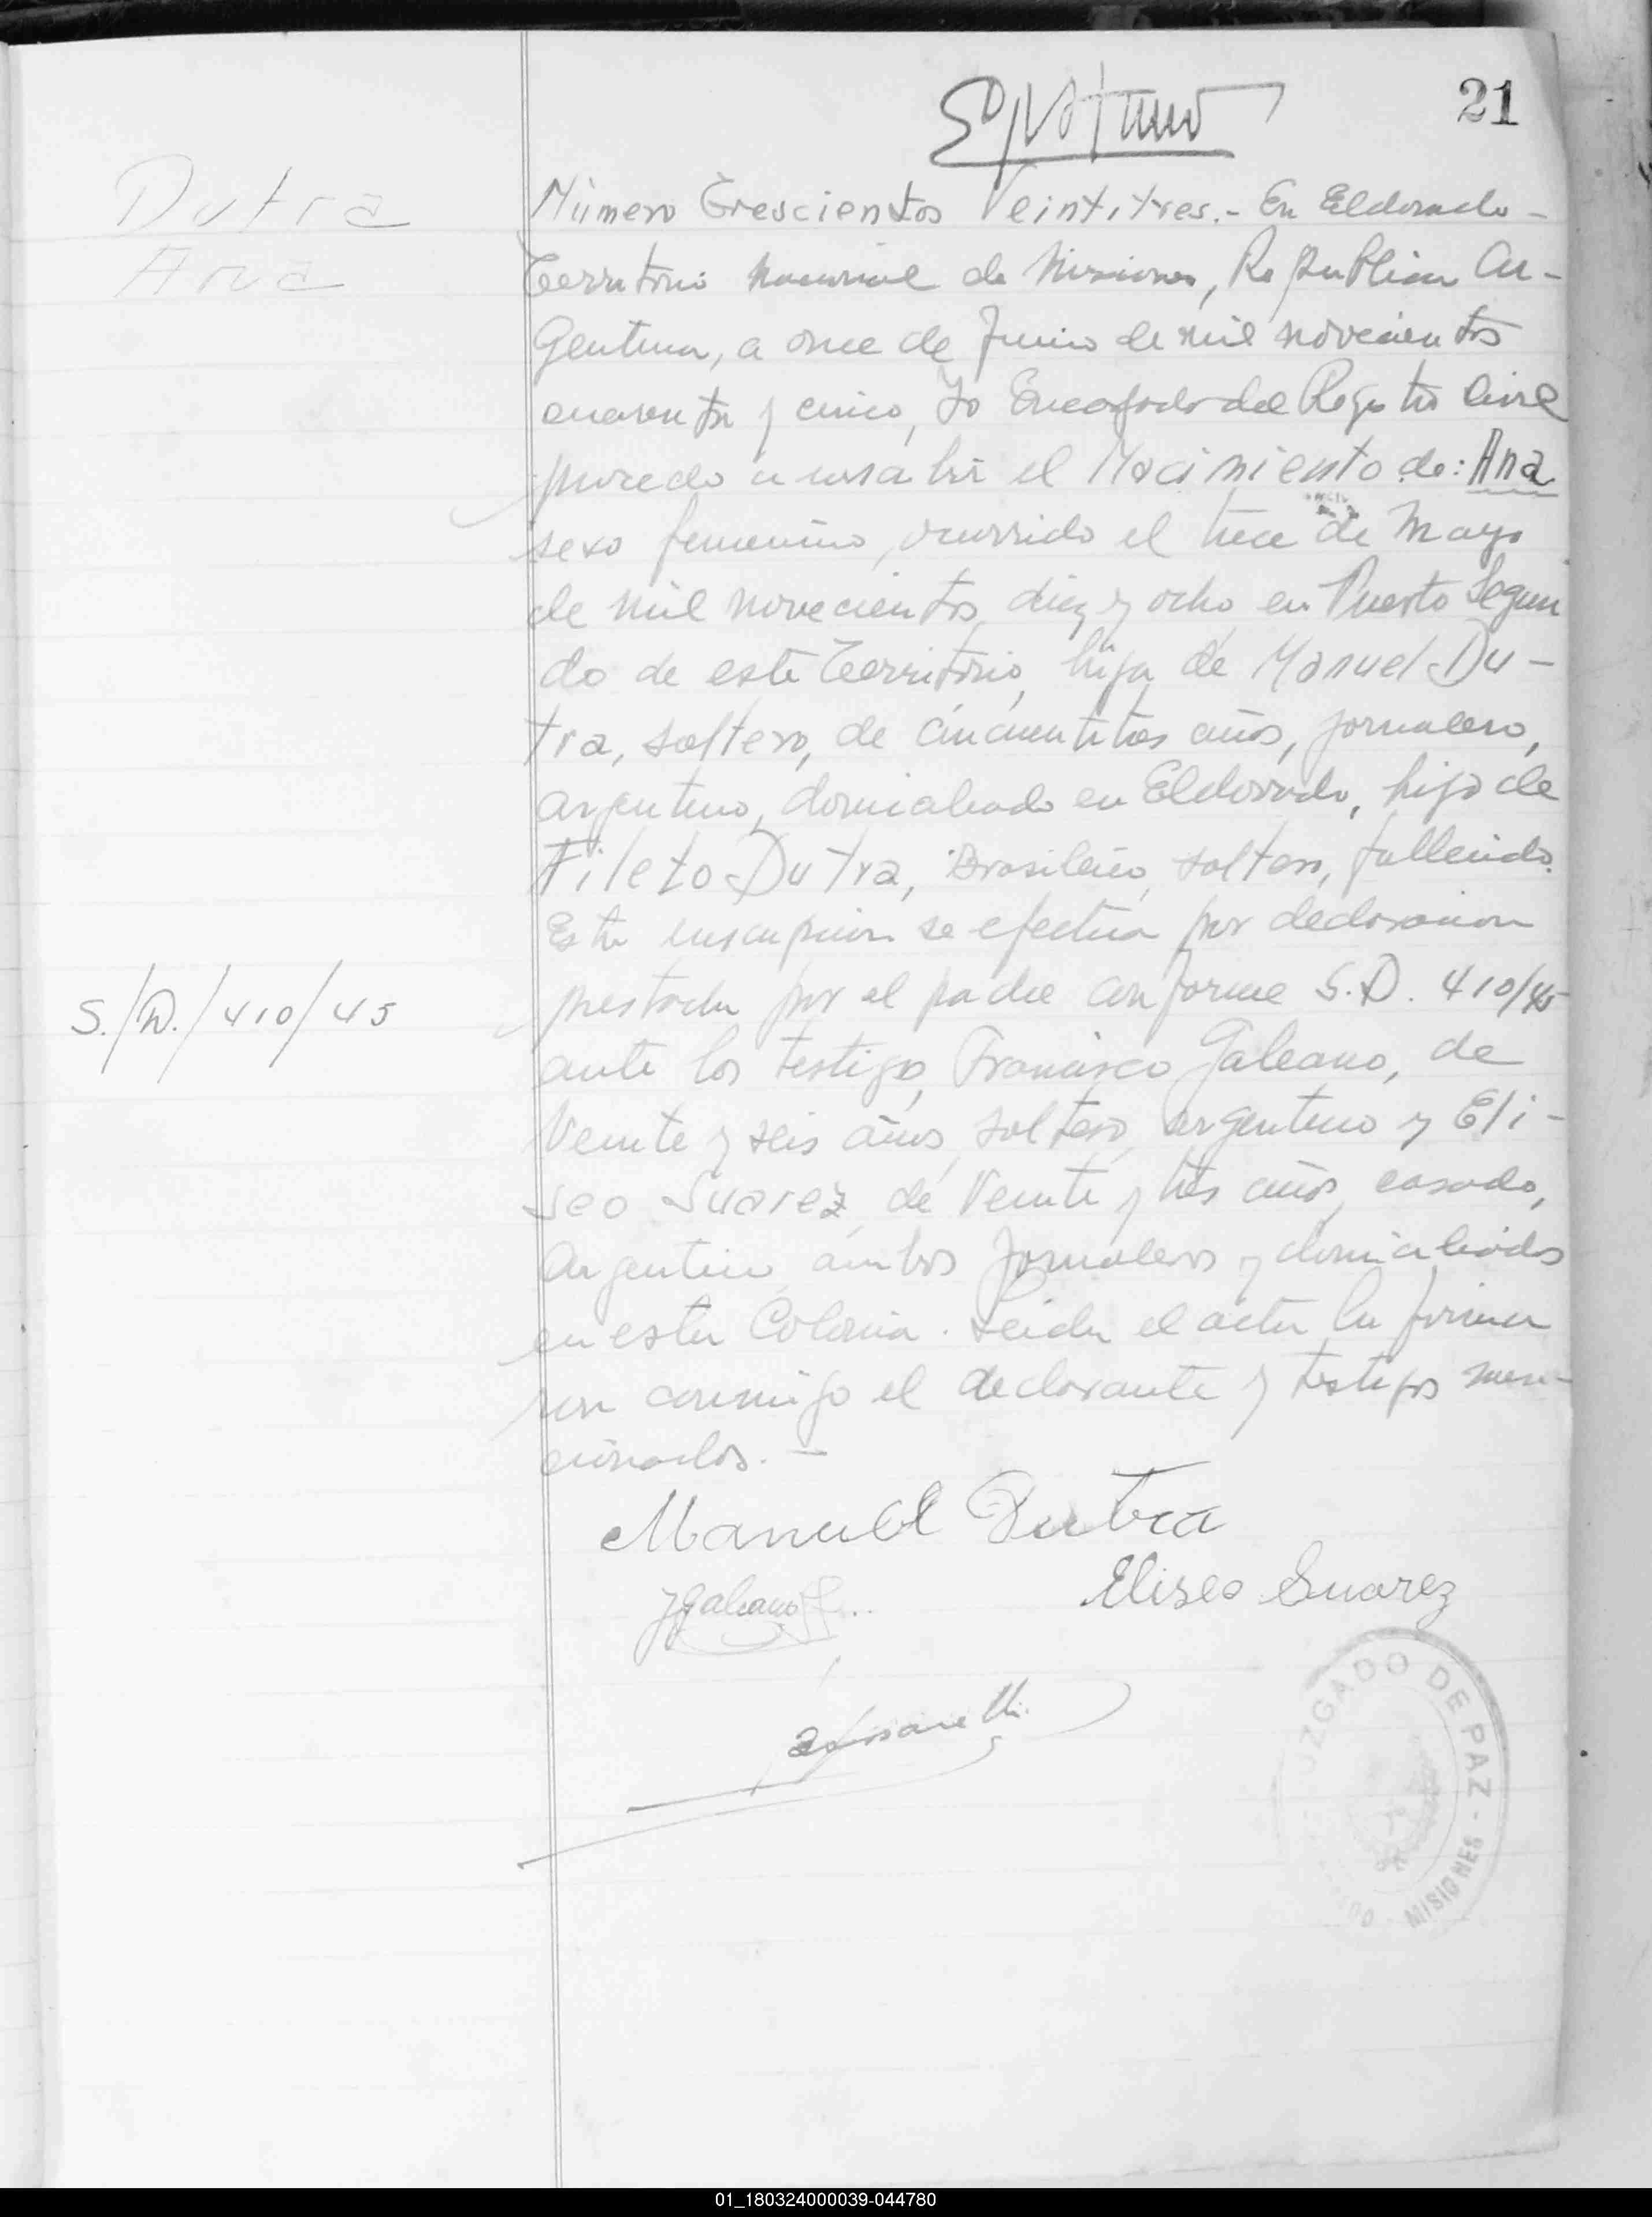 21
Dutra
Ana
Número Trescientos Veintitres.- En Eldorado -
Territorio Nacional de Misiones, Republica Ar-
gentina, a once de Junio de mil novecientos
cuarenta y cinco, Yo Encargado del Registro Civil
procedo a inscribir el Nacimiento de: Ana
sexo femenino, ocurrido el trece de Mayo
de mil novecientos diez y ocho en Puerto Segun
do de este Territorio, hija de Manuel Du-
tra, soltero, de cincuentitres años, jornalero,
argentino, domiciliado en Eldorado, hijo de
Fileto Dutra, Brasileño, soltero, fallecido.
Esta inscripcion se efectua por declaracion
prestada por el padre conforme S.D. 410/45
S./D./410/45
ante los testigos, Francisco Galeano, de
Veinte y seis años, soltero, argentino y Eli-
seo Suarez, de Veinte y tres años, casado,
Argentino, ambos jornaleros y domiciliados
en esta Colonia. Leida el acta la firma
ron conmigo el declarante y testigos men-
cionados. -
Manuel Dutra
Galeano
Eliseo Suarez
JUZGADO DE PAZ - MISIONES
01_180324000039-044780